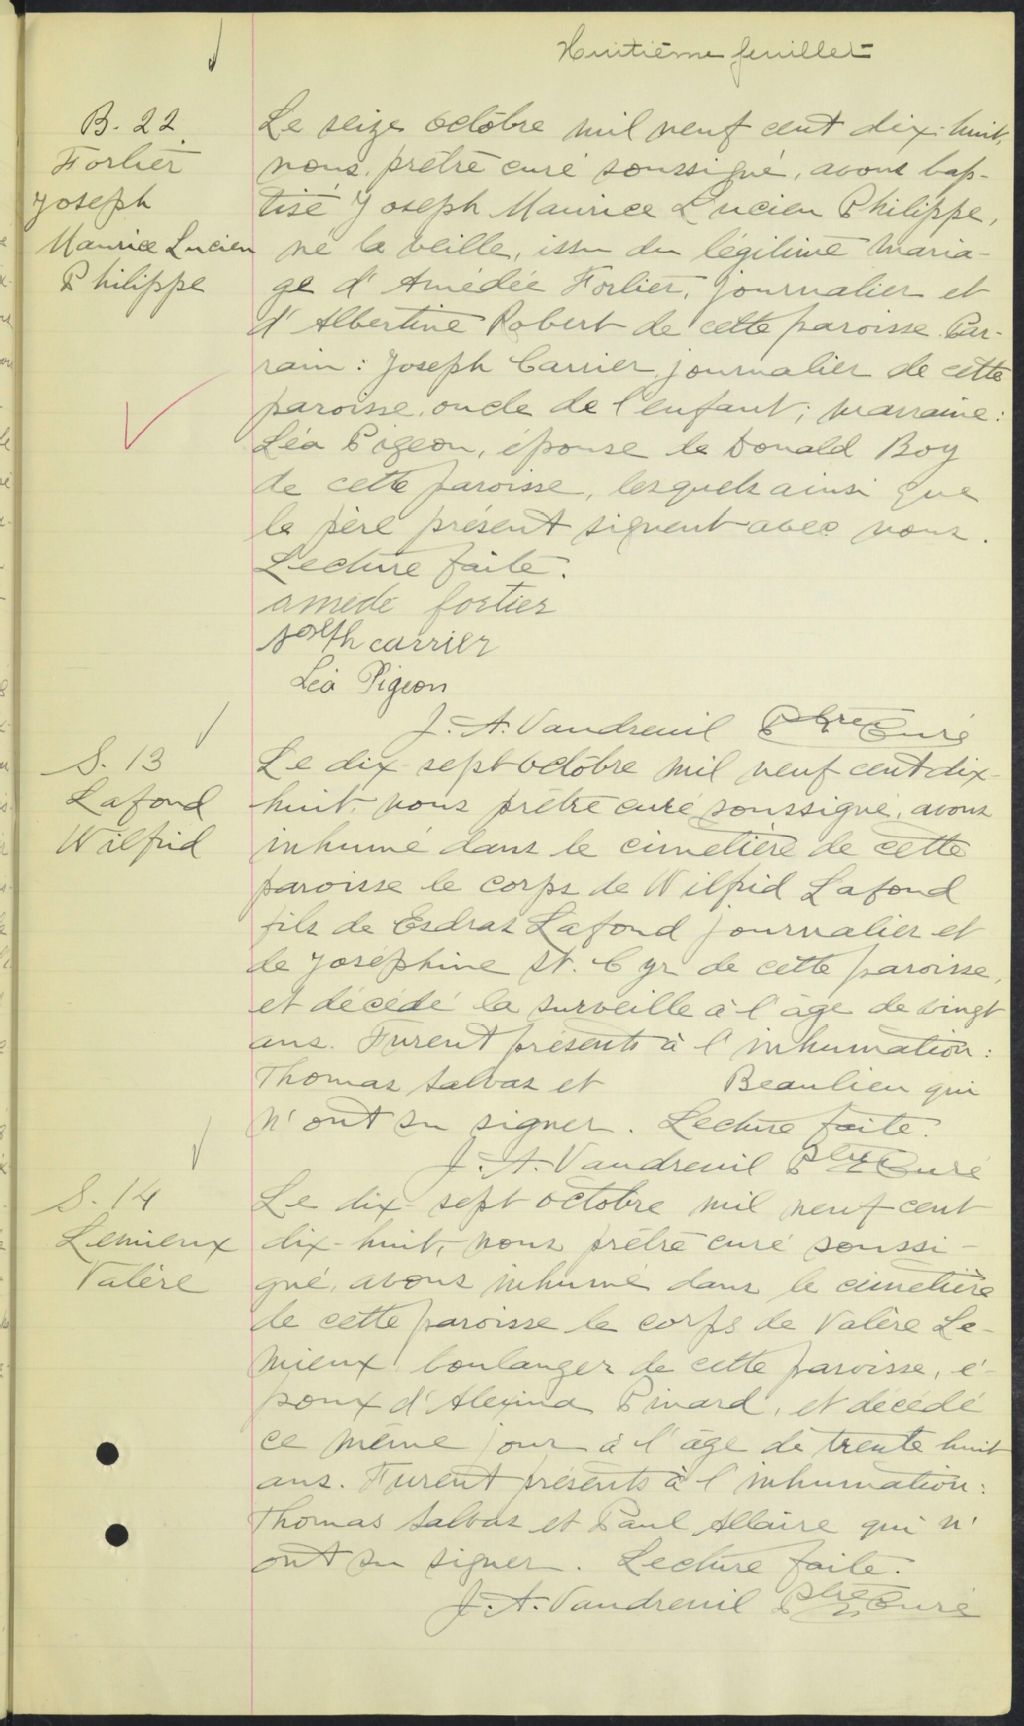 Huitième feuillet
B. 22
Fortier
Joseph
Maurice Lucien
Philippe
Le seize octobre mil neuf cent dix-huit,
nous, prêtre curé soussigné, avons bap-
tisé Joseph Maurice Lucien Philippe,
né la veille, issu du légitime maria-
ge d'Amédée Fortier, journalier et
d'Albertine Robert de cette paroisse. Par-
rain: Joseph Carrier, journalier de cette
paroisse, oncle de l'enfant; marraine:
Léa Pigeon, épouse de Donald Boy
de cette paroisse, lesquels ainsi que
le père présent signent avec nous.
Lecture faite.
amédé fortier
joseph carrier
Léa Pigeon
J. A. Vaudreuil Ptre Curé
S. 13
Lafond
Wilfrid
Le dix-sept octobre mil neuf cent dix-
huit, nous prêtre curé soussigné, avons
inhumé dans le cimetière de cette
paroisse le corps de Wilfrid Lafond
fils de Esdras Lafond journalier et
de Joséphine St. Cyr de cette paroisse,
et décédé la surveille à l'âge de vingt
ans. Furent présents à l'inhumation:
Thomas Salvas et Beaulieu qui
n'ont su signer. Lecture faite.
J. A. Vaudreuil Ptre Curé
S. 14
Lemieux
Valère
Le dix-sept octobre mil neuf cent
dix-huit, nous prêtre curé soussi-
gné, avons inhumé dans le cimetière
de cette paroisse le corps de Valère Le-
mieux boulanger de cette paroisse, é-
poux d'Alexina Pinard, et décédé
ce même jour à l'âge de trente huit
ans. Furent présents à l'inhumation:
Thomas Salvas et Paul Allaire qui n'
ont su signer. Lecture faite.
J. A. Vaudreuil Ptre Curé